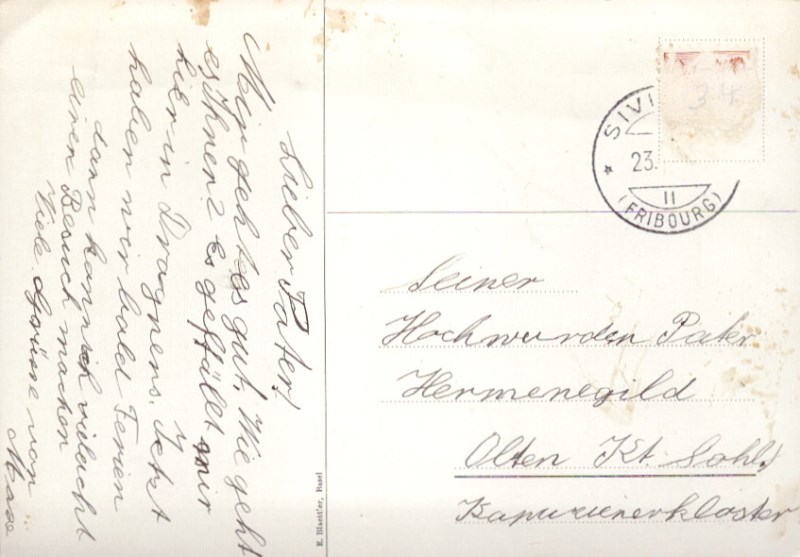 Lieber Pater!
Mir geht es gut! Wie geht
es Ihnen? Es gefällt mir
hier in Dragnens. Jetzt
haben wir bald Ferien
dann kann ich vielacht
einen Besuch machen
Viele Grüsse von
E. Blaettler, Basel
SIVI
23.
II
(FRIBOURG)
34
Seiner
Hochwurden Pater
Hermenegild
Olten Kt. Soht.
Kapuzienerkloster